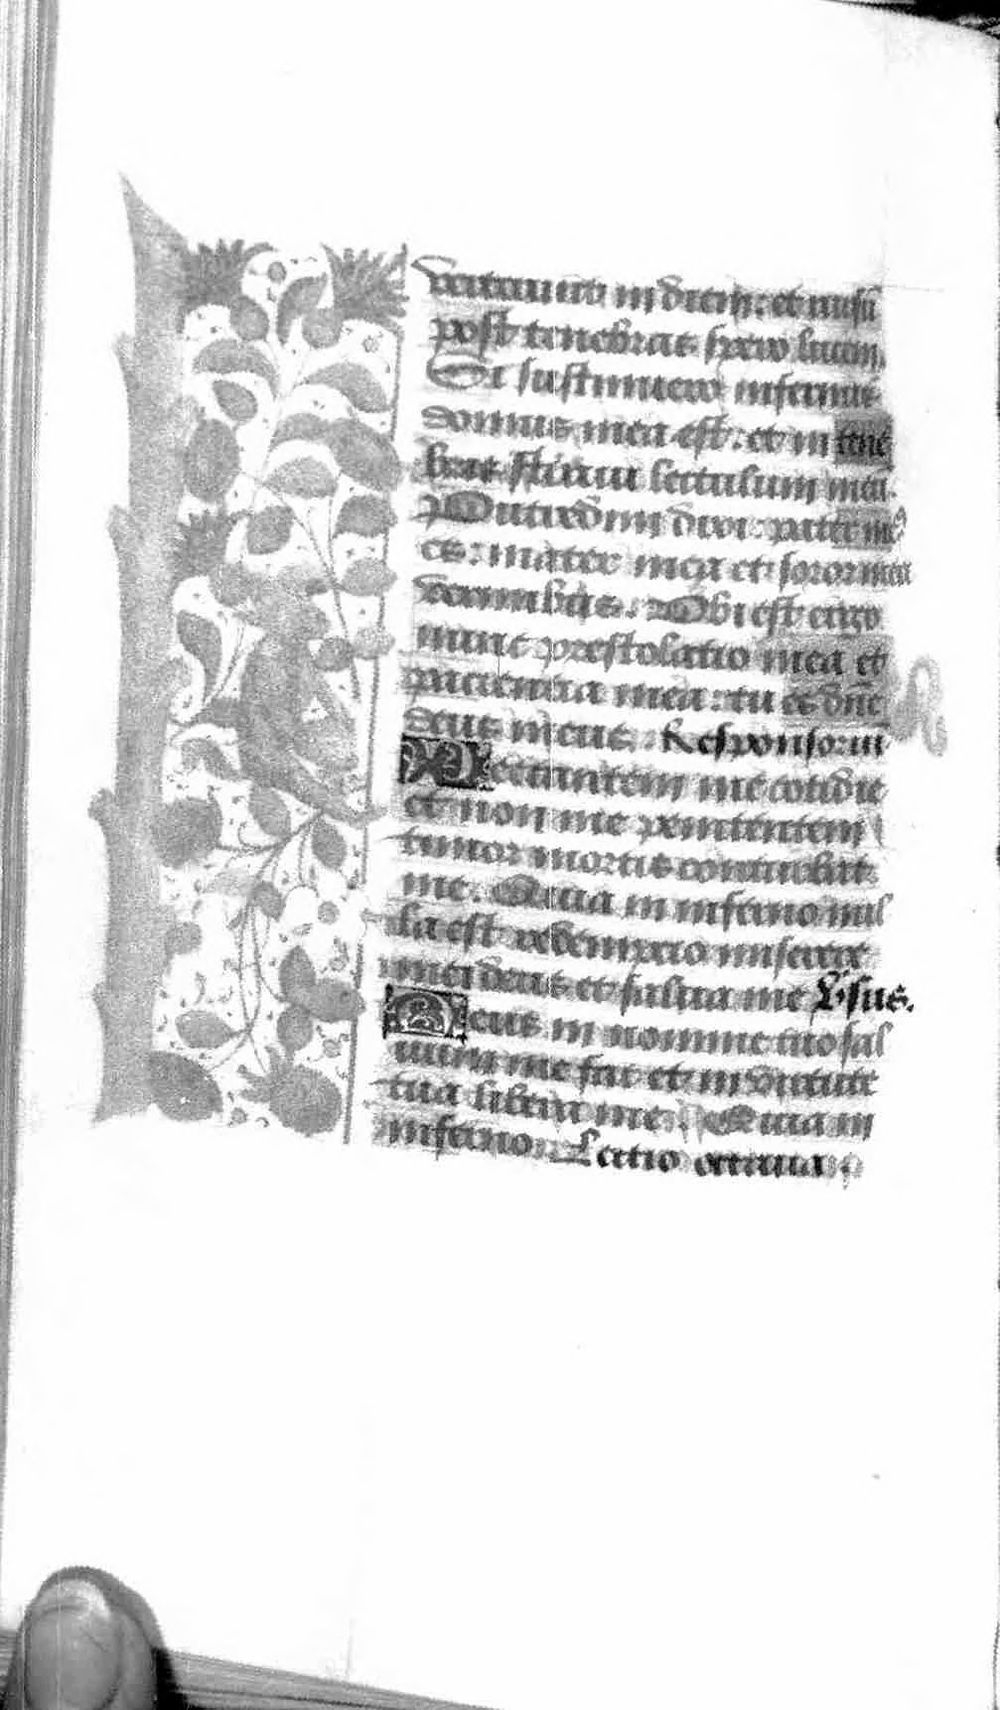 verterunt in diem: et rursū
post tenebras spero lucem.
Si sustinuero infernus
domus mea est. et in tene
bris straui lectulum meū.
Putredini dixi: pater me⁹
es: mater mea et soror mea
vermibus. Vbi est ergo
nunc prestolatio mea et
paciencia mea: tu es dn̄e
deus meus. Responsoriū
Peccantem me cotidie
et non me penitentem
timor mortis conturbat
me. Quia in inferno nul
la est redempcio miserere
mei deus et salua me v̓sus.
Deus in nomine tuo sal
uum me fac et in virtute
tua libera me. Quia in
inferno. Lectio octaua.